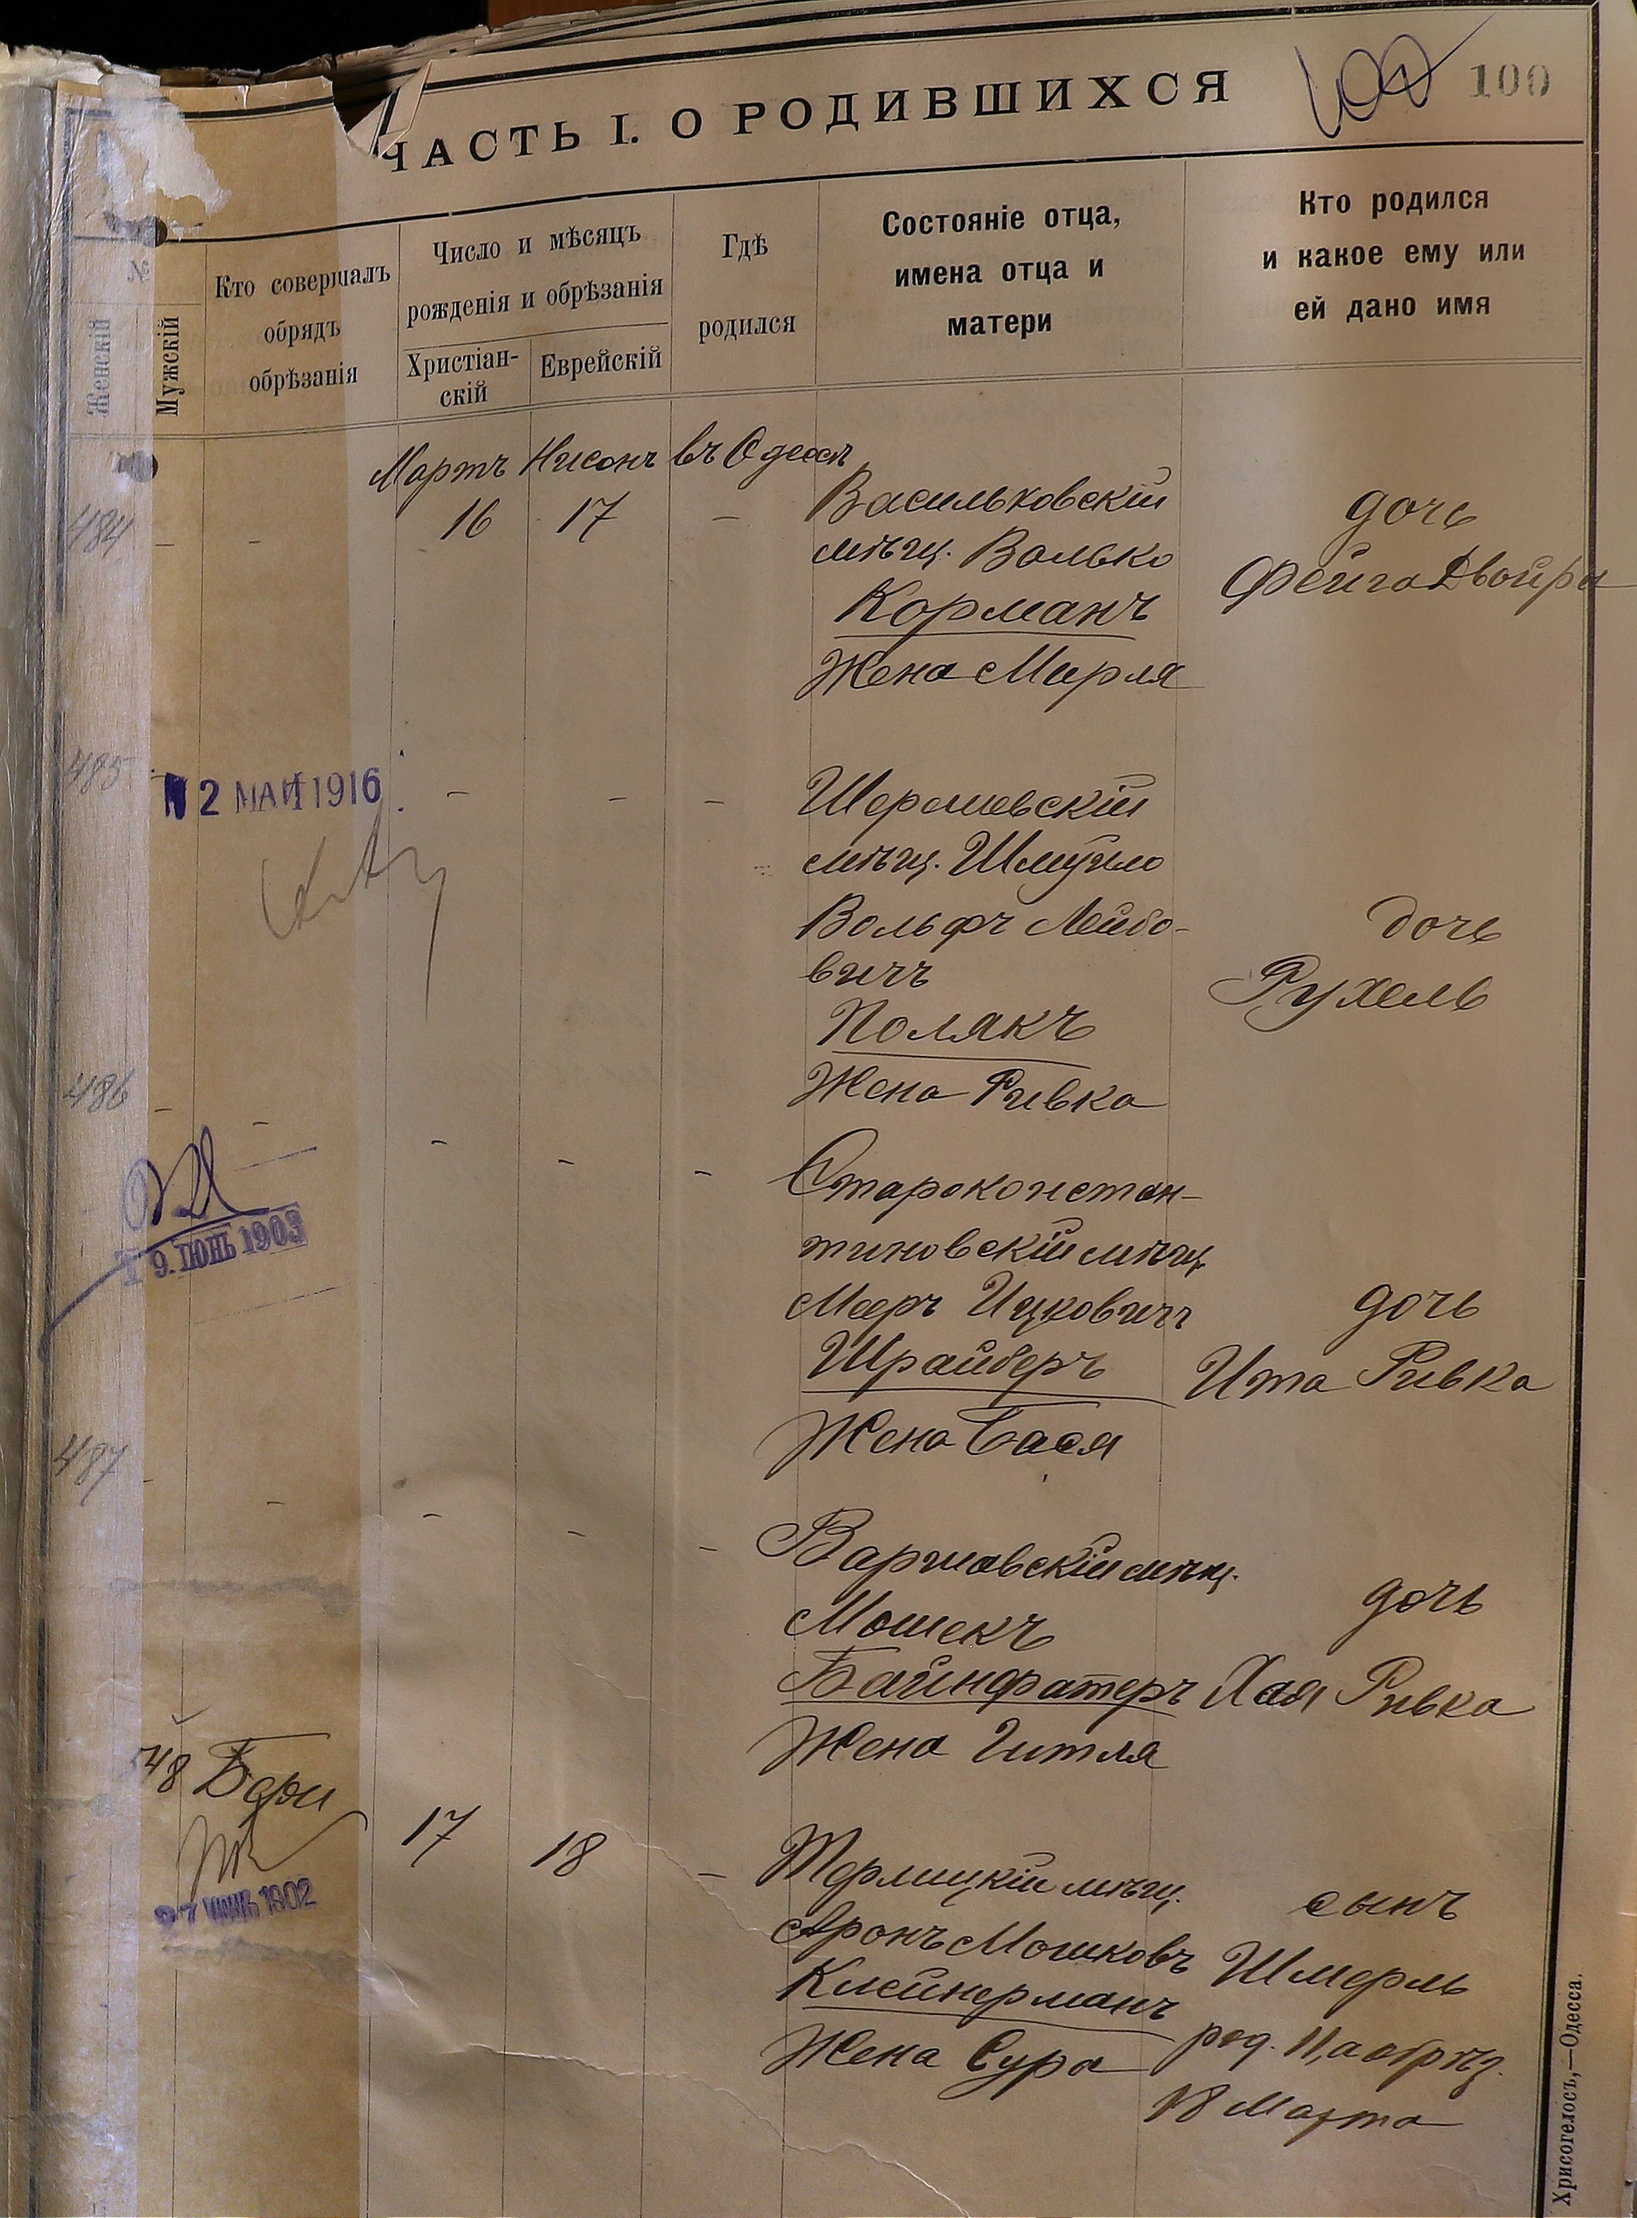 ЧАСТЬ I. О РОДИВШИХСЯ
100
100
№
Женскій
Мужскій
Кто совершалъ
обрядъ
обрѣзанія
Число и мѣсяцъ
рожденія и обрѣзанія
Христіан-
скій
Еврейскій
Гдѣ
родился
Состояніе отца,
имена отца и
матери
Кто родился
и какое ему или
ей дано имя
Мартъ Нисонъ въ Одессѣ
484 - - 16 17 -
Васильковскій
мѣщ. Волько
Корманъ
Жена Мирля
дочь
Фейга Двойра
485
2 МАЙ 1916
- - -
Шерешевскій
мѣщ. Шмуйло
Вольфъ Лейбо-
вичъ
Полякъ
Жена Ривка
дочь
Рухель
486 - - - - -
9. ІЮНЬ 1903
Староконстан-
тиновскій мѣщ.
Мееръ Ицковичъ
Шрайберъ
Жена Бася
дочь
Ита Ривка
487 - - - - -
Варшавскій мѣщ.
Мошекъ
Байнфатеръ
Жена Гитля
дочь
Хая Ривка
17 18 -
1902
Терлицкій мѣщ.
Аронъ Мошковъ
Клейнерманъ
Жена Сура
сынъ
Шмерль
род. 11, а обрѣз.
18 Марта
Хрисогелосъ,—Одесса.